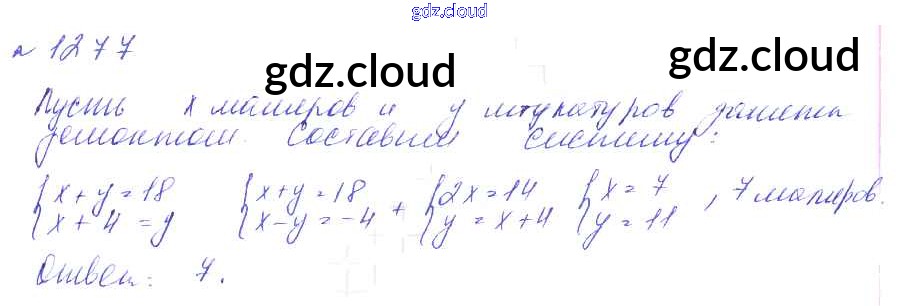 gdz.cloud
№ 1277
gdz.cloud
gdz.cloud
Пусть x маляров и y штукатуров заняты
ремонтом. Составим систему:
{x + y = 18 {x + y = 18 + {2x = 14 {x = 7 , 7 маляров.
{x + 4 = y {x - y = -4 {y = x + 4 {y = 11
Ответ: 7.